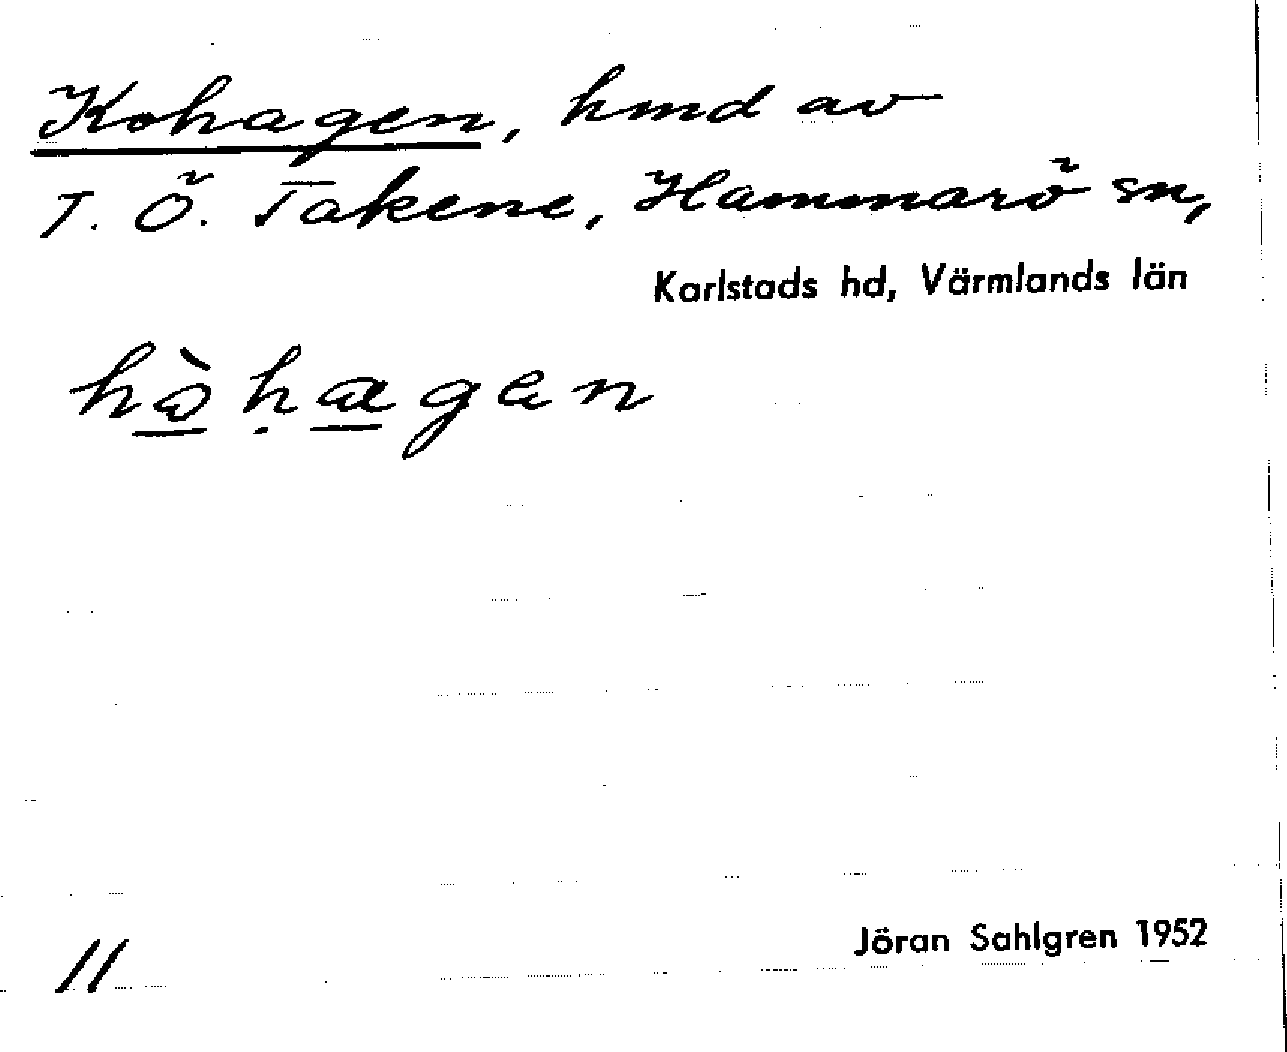 Kohagen, hmd av
T. Ö. Takene, Hammarö sn,
Karlstads hd, Värmlands län
Jöran Sahlgren 1952
11